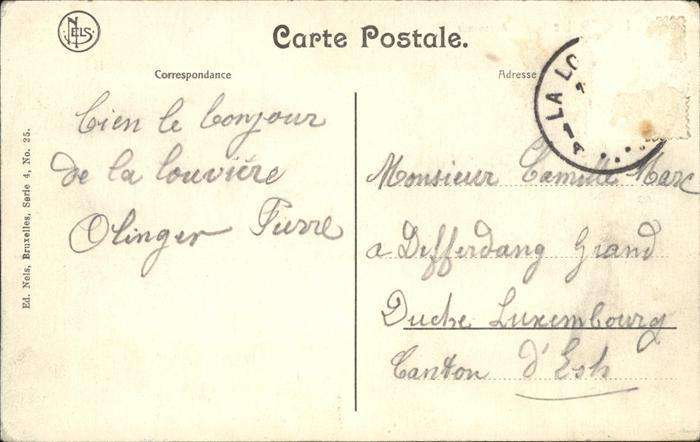 NELS
Carte Postale.
Correspondance
Adresse
LA LO
Bien le bonjour
de la louvière
Olinger Pierre
Monsieur Camille Marc
a Differdang Grand
Duche Luxembourg
Canton d'Esh
Ed. Nels, Bruxelles, Serie 4, No. 25.